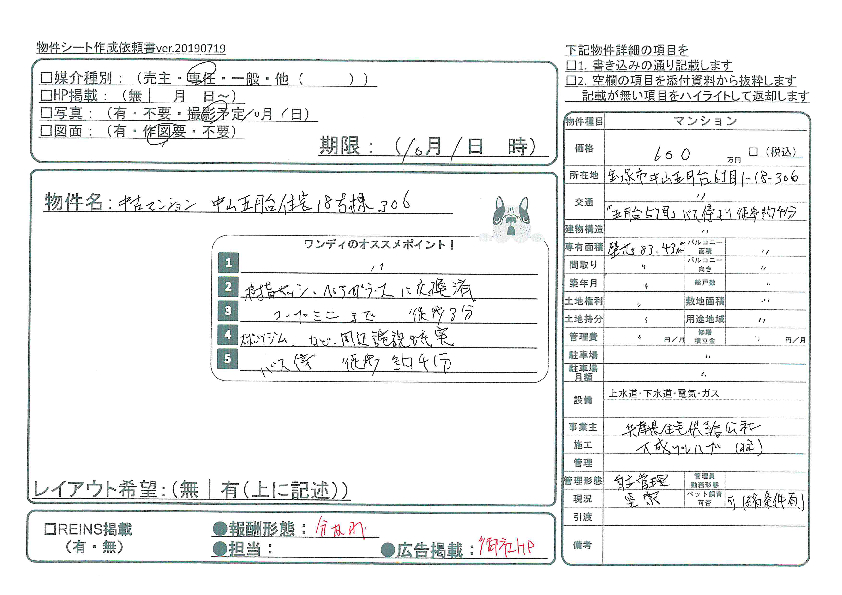 物件シート作成依頼書ver.20190719
□媒介種別：（売主・専任・一般・他（　　　））
□HP掲載：（無｜　月　日～）
□写真：（有・不要・撮影予定/10月/日）
□図面：（有・作図要・不要）
期限：（10月/日　時）
物件名：中古マンション 中山五月台住宅18号棟306
ワンディのオススメポイント！
1 〃
2
3 徒歩3分
4 周辺施設充実
5 バス停 徒歩約4分
レイアウト希望：（無｜有（上に記述））
□REINS掲載
（有・無）
●報酬形態：分かれ
●担当：
●広告掲載：御社HP
下記物件詳細の項目を
□1. 書き込みの通り記載します
□2. 空欄の項目を添付資料から抜粋します
記載が無い項目をハイライトして返却します
物件種目 マンション
価格 650 万円 □（税込）
所在地 宝塚市中山五月台6丁目1-18-306
交通 〃
「五月台5丁目」バス停より徒歩約4分
建物構造 〃
専有面積 壁芯83.43㎡ バルコニー面積 〃
間取り 〃 バルコニー向き 〃
築年月 〃 総戸数 〃
土地権利 〃 敷地面積 〃
土地持分 〃 用途地域 〃
管理費 〃 円/月 修繕積立金 〃 円/月
駐車場 〃
駐車場月額 〃
設備 上水道・下水道・電気・ガス
事業主 兵庫県住宅供給公社
施工
管理
管理形態 自主管理 管理員勤務形態
現況 空家 ペット飼育可否 可
引渡
備考